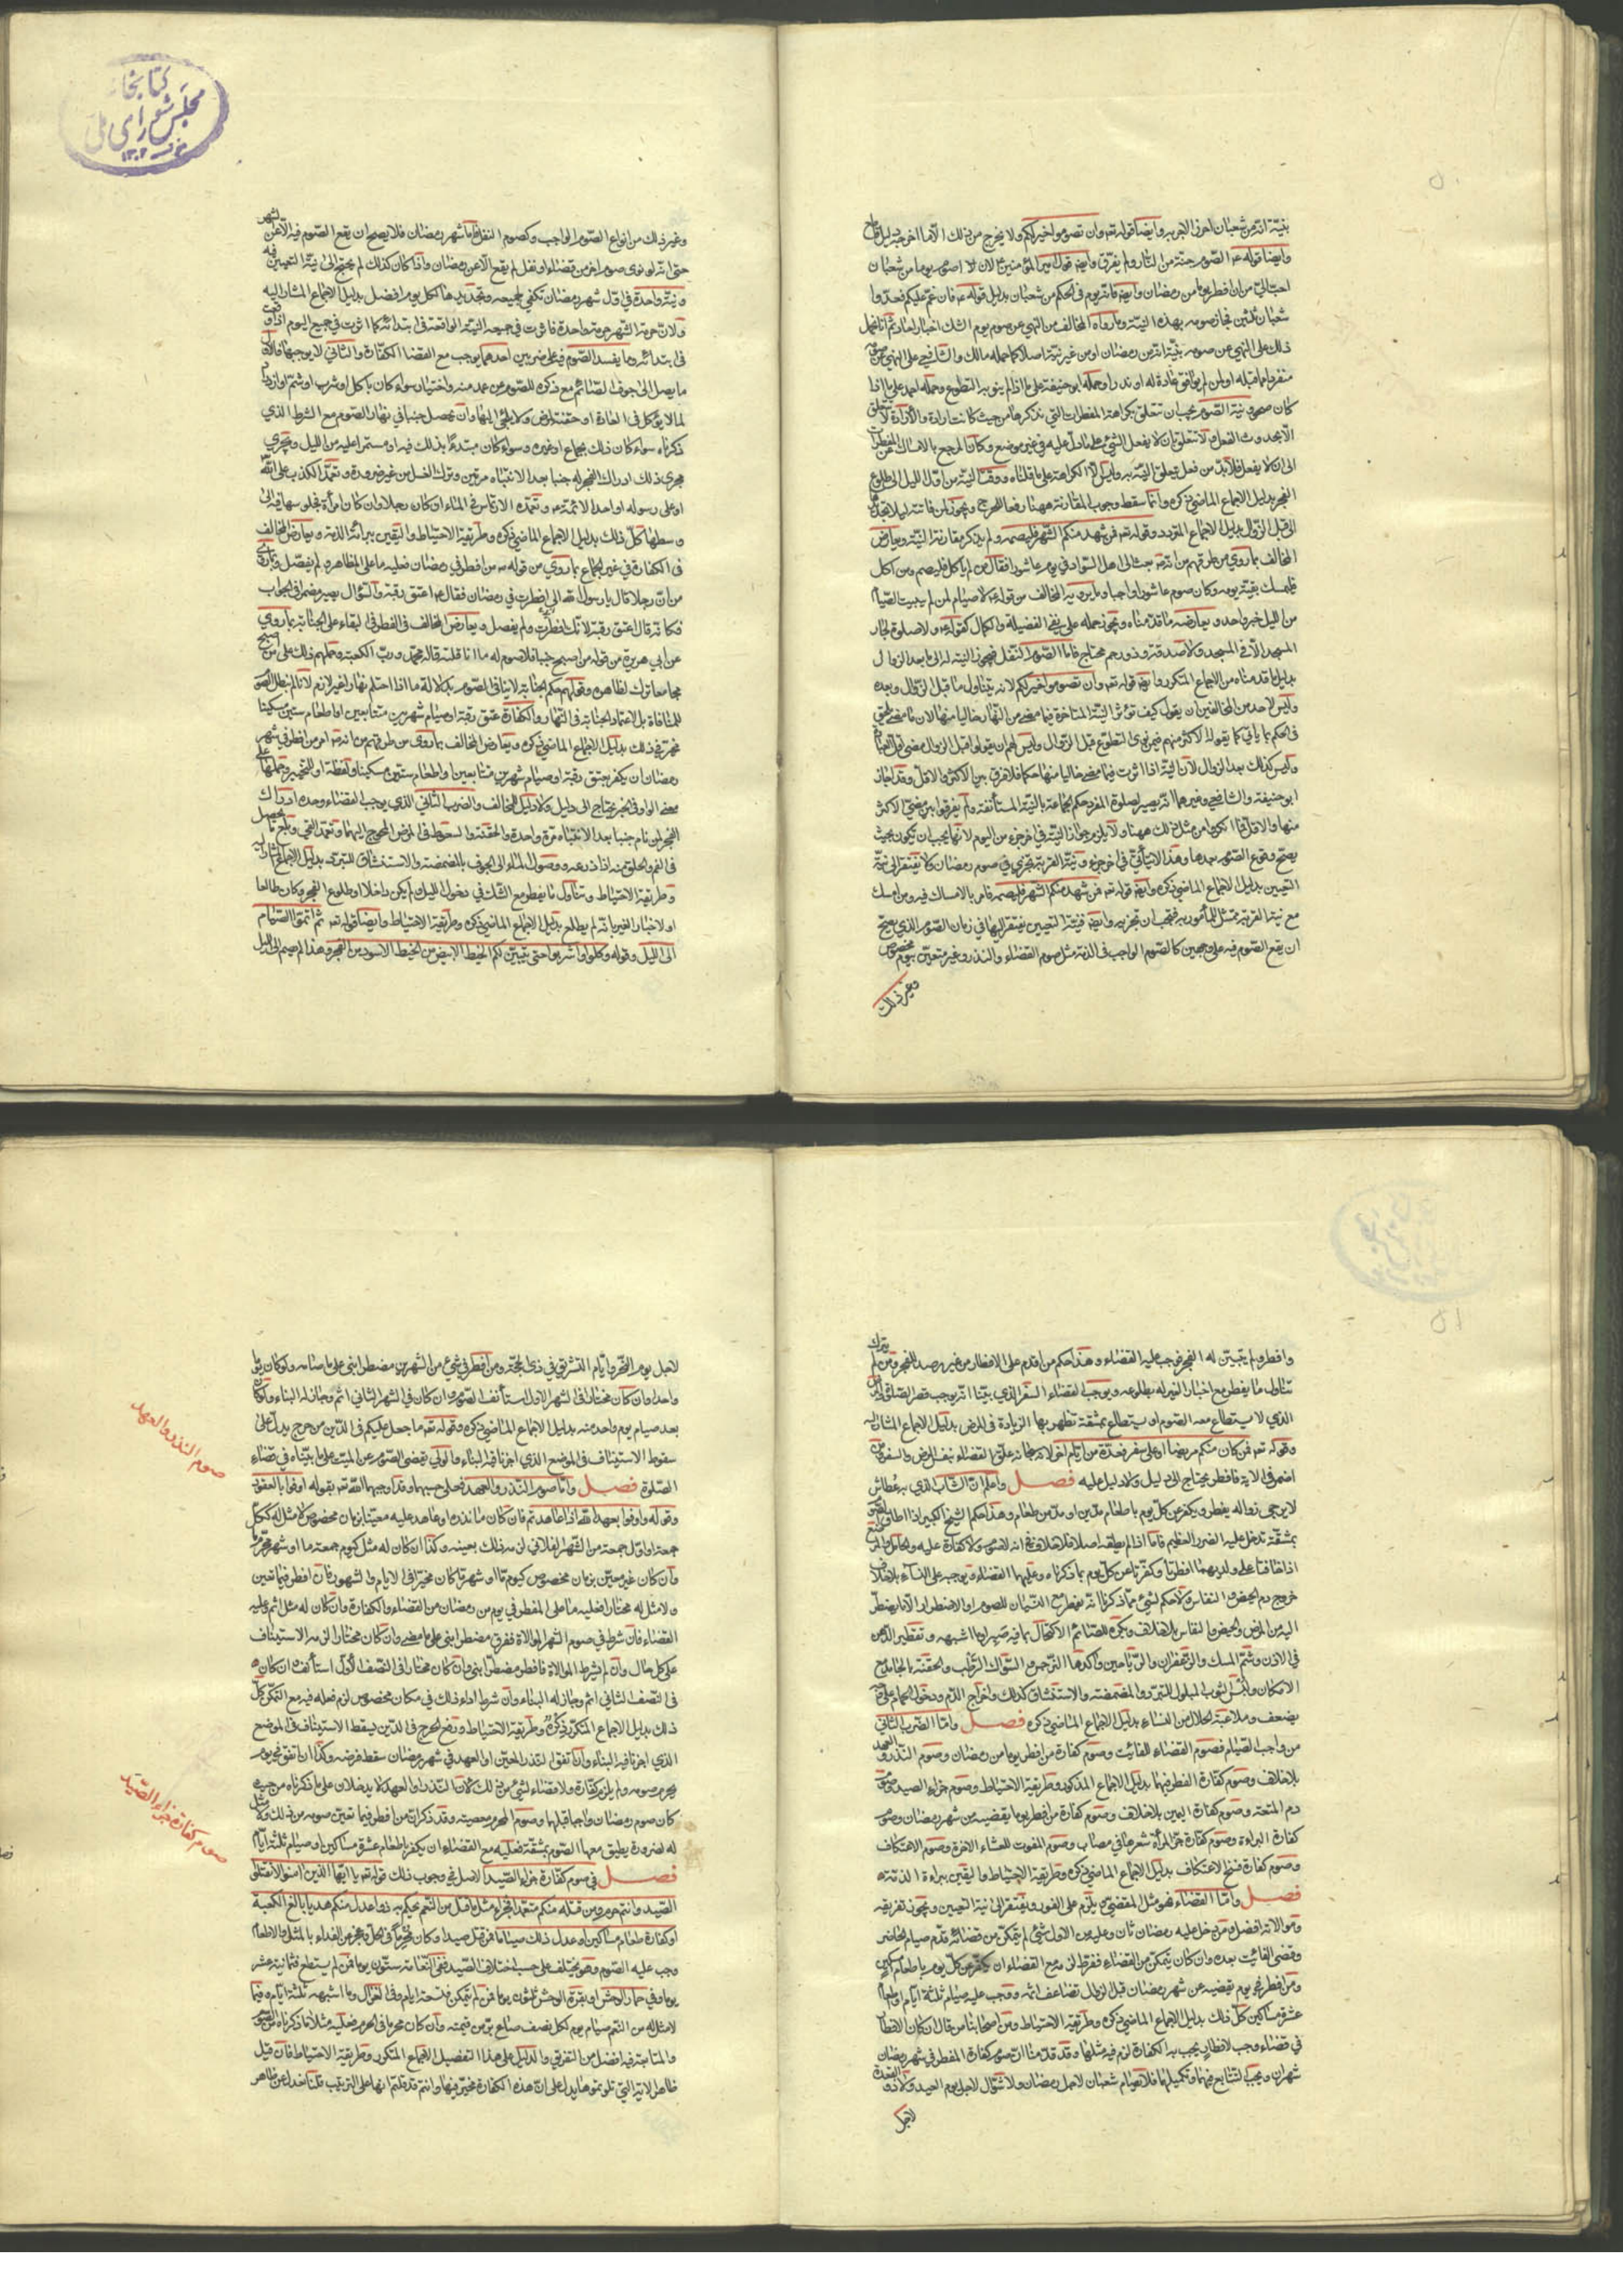 بنية انه من شعبان اجزى لاجزيه وايضا قوله تعه وان تصوموا خير لكم ولا يخرج من ذلك الا ما اخرجه دليل قاطع
وايضا قوله عه الصوم جنة من النار ولم يفرق وايضه قول امير المؤمنين ع لان لا اصوم يوما من شعبان
احب الي من ان افطر يوما من رمضان وايضه فانه يوم في الحكم من شعبان بدليل قوله عه فان غم عليكم فعدوا
شعبان ثلثين فجاز صومه بهذه النية وما رواه المخالف من النهي عن صوم يوم الشك اخبار احاد ثم انا نحمل
ذلك على النهي عن صومه بنية انه من رمضان او من غير نية اصلا كما حمله مالك والشافعي على النهي عن صومه
منفردا عما قبله او لمن لم يوافق عادة له او نذرا وحمله ابو حنيفة على ما اذا لم ينو به التطوع وحمله احمد على ما اذا
كان صحو ونية الصوم يجب ان تتعلق بكراهة المفطرات التي نذكرها من حيث كانت ارادة والارادة لا تتعلق
الا بحدوث الفعل ولا تتعلق بان لا يفعل الشئ على ما دل عليه في غير موضع وكان المرجع بالامساك عن المفطرات
الى ان لا يفعل فلا بد من فعل تتعلق النية به وليس الا الكراهة على ما قلناه ووقت النية من اول الليل الى طلوع
الفجر بدليل الاجماع الماضي ذكره وانما سقط وجوب المقارنة ههنا رفعا للحرج ويجوز لمن فاتته ليلا تجديدها
الى قبل الزوال بدليل الاجماع المتردد وقوله تعه فمن شهد منكم الشهر فليصمه ولم يذكر مقارنة النية ويعارض
المخالف بما روي من طرقهم من انه عه بعث الى اهل السواد في يوم عاشورا فقال من لم ياكل فليصم ومن اكل
فليمسك بقية يومه وكان صوم عاشورا واجبا وما يرويه المخالف من قوله عه لا صيام لمن لم يبيت الصيام
من الليل خبر واحد ويعارضه ما قدمناه ويجوز حمله على نفي الفضيلة والكمال كقوله عه ولا صلوة لجار
المسجد الا في المسجد ولا صدقة وذو رحم محتاج فاما الصوم التنفل فيجوز النية له الى ما بعد الزوال
بدليل ما قدمناه من الاجماع المتكرر وايضه قوله تعه وان تصوموا خير لكم لانه يتناول ما قبل الزوال وبعده
وليس لاحد من المخالفين ان يقول كيف تؤثر النية المتاخرة فيما مضى من النهار خاليا منها لان ما مضى يلحق
في الحكم بما ياتي كما يقوله الاكثر منهم فيمن نوى التطوع قبل الزوال وليس لهم ان يقولوا قبل الزوال مضى اقل العبادة
وليس كذلك بعد الزوال لان النية اذا اثرت فيما مضى خاليا منها حكما فلا فرق بين الاكثر والاقل وقد اجاز
ابو حنيفة والشافعي وغيرهما انه يصير لصلوة المفرد حكم الجماعة بالنية المستأنفة ولم يفرقوا بين مضي الاكثر
منها والاقل فما انكروا من مثل ذلك ههنا ولا يلزم جواز النية في اخر جزء من اليوم لانها يجب ان تكون بحيث
يصح وقوع الصوم بعدها وهذا لا يتأتى في اخر جزء ونية القربة تجزي في صوم رمضان ولا يفتقر الى نية
التعيين بدليل الاجماع الماضي ذكره وايضه قوله تعه فمن شهد منكم الشهر فليصمه فامر بالامساك فيه ومن امسك
مع نية القربة ممتثل للمأمور به فيجب ان تجزيه وايضه فنية التعيين يفتقر اليها في زمان الصوم الذي يصح
ان يقع الصوم فيه على وجهين كالصوم الواجب في الذمة مثل صوم القضاء والنذر وغير متعين بيوم مخصوص
وغير ذلك
كتابخانه
مجلس شورای ملی
١٣٠٢
وغير ذلك من انواع الصوم الواجب وكصوم النفل فاما شهر رمضان فلا يصح ان يقع الصوم فيه الا عن الشهر
حتى انه لو نوى صوم اخر من قضاء او نفل لم يقع الا عن رمضان واذا كان كذلك لم يحتج الى نية التعيين فيه
ونية واحدة في اول شهر رمضان تكفي لجميعه وتجديدها لكل يوم افضل بدليل الاجماع المشار اليه
ولان حرمة الشهر حرمة واحدة فاثرت في جميعه النية الواقعة في ابتدائه كما اثرت في جميع اليوم اذا وقعت
في ابتدائه وما يفسد الصوم فيه على ضربين احدهما يوجب مع القضا الكفارة والثاني لا يوجبها فالاول
ما يصل الى جوف الصائم مع ذكره للصوم عن عمد منه واختيار سواء كان باكل او شرب او شم او ازدراد
لما لا يؤكل في العادة او حقنة لمرض ولا يلجئ اليها وان تحصل جنبا في نهار الصوم مع الشرط الذي
ذكرناه سواء كان ذلك بجماع او غيره وسواء كان مبتدئا بذلك فيه او مستمرا عليه من الليل ويجري
مجرى ذلك ادراك الفجر له جنبا بعد الانتباه مرتين وترك الغسل من غير ضرورة وتعمد الكذب على الله
او على رسوله او احد الائمة عه وتعمده الارتماس في الماء ان كان رجلا وان كان امرأة فجلوسها فيه الى
وسطها كل ذلك بدليل الاجماع الماضي ذكره وطريقة الاحتياط واليقين ببرائة الذمة ويعارض المخالف
في الكفارة في غير الجماع بما روي من قوله عه من افطر في رمضان فعليه ما على المظاهر ولم يفصل وبما روي
من ان رجلا قال يا رسول الله اني افطرت في رمضان فقال عه اعتق رقبة والسؤال يصير مضمرا في الجواب
فكانه قال اعتق رقبة لانك افطرت ولم يفصل ويعارض المخالف في الفطر في البقاء على الجنابة بما روي
عن ابي هريرة من قوله من اصبح جنبا فلا صوم له ما انا قلته قاله محمد ورب الكعبة وحملهم ذلك على من اصبح
مجامعا ترك لظاهره وقولهم حكم الجنابة لا ينافي الصوم بدلالة ما اذا احتلم نهارا غير لازم لانا لم نبطل الصوم
للمنافاة بل لاعتماد الجنابة في النهار والكفارة عتق رقبة او صيام شهرين متتابعين او اطعام ستين مسكينا
مخير في ذلك بدليل الاجماع الماضي ذكره ويعارض المخالف بما روى من طرقهم من انه عه امر من افطر في شهر
رمضان ان يكفر بعتق رقبة او صيام شهرين متتابعين او اطعام ستين مسكينا ولفظة او للتخيير وحملها على
معنى الواو في الخبر يحتاج الى دليل ولا دليل للمخالف والضرب الثاني الذي يوجب القضاء وحده ادراك
الفجر لمن نام جنبا بعد الانتباه مرة واحدة والحقنة والسعوط في المرض المحوج اليهما وتعمد القي وبلع ما يحصل
في الفم والحلق منه اذا ذرعه ووصول الماء الى الجوف بالمضمضة والاستنشاق للتبرد بدليل الاجماع المشار اليه
وطريقة الاحتياط وتناول ما يفطر مع الشك في دخول الليل ولم يكن داخلا او طلوع الفجر وكان طالعا
او لاخبار الغير بانه لم يطلع بدليل الاجماع الماضي ذكره وطريقة الاحتياط وايضا قوله تعه ثم اتموا الصيام
الى الليل وقوله وكلوا واشربوا حتى يتبين لكم الخيط الابيض من الخيط الاسود من الفجر وهذا لم يصم الى الليل
وافطر ولم يتبين له الفجر فوجب عليه القضاء وهذا حكم من اقدم على الافطار من غير رصد للفجر ومن لم يترك
تناول ما يفطر مع اخبار الغير له بطلوعه ويوجب القضاء السفر الذي بينا انه يوجب قصر الصلوة والمرض
الذي لا يستطاع معه الصوم او يستطاع بمشقة تظهر بها الزيادة في المرض بدليل الاجماع المشار اليه
وقوله تعه فمن كان منكم مريضا او على سفر فعدة من ايام اخر لانه سبحانه علق القضاء بنفس المرض والسفر ومن
اضمر في الاية فافطر يحتاج الى دليل ولا دليل عليه فصل واعلم ان الشاب الذي به عطاش
لا يرجى زواله يفطر ويكفر عن كل يوم باطعام مدين او مد من طعام وهذا حكم الشيخ الكبير اذا اطاق الصوم
بمشقة تدخل عليه الضرر العظيم فاما اذا لم يطقه اصلا فلا خلاف في انه لا صوم ولا كفارة عليه والحامل والمرضع
اذا خافتا على ولديهما افطرتا وكفرتا عن كل يوم بما ذكرناه وعليهما القضاء ويوجب على النساء بلا خلاف
خروج دم الحيض والنفاس ولا حكم لشيء مما ذكرنا انه يفطر مع النسيان للصوم او الاضطرار الا ما يضطر
اليه من المرض والحيض والنفاس بلا خلاف ويكره للصائم الاكتحال بما فيه صبر او ما اشبهه وتقطير الدهن
في الاذن وشم المسك والزعفران والرياحين واكدها النرجس والسواك الرطب والحقنة بالجامد مع
الامكان ولبس الثوب المبلول للتبرد والمضمضة والاستنشاق كذلك واخراج الدم ودخول الحمام على وجه
يضعف وملاعبة الحلال من النساء بدليل الاجماع الماضي ذكره فصل واما الضرب الثاني
من واجب الصيام فصوم القضاء للفائت وصوم كفارة من افطر يوما من رمضان وصوم النذر والعهد
بلا خلاف وصوم كفارة الفطر فيهما بدليل الاجماع المذكور وطريقة الاحتياط وصوم جزاء الصيد وصوم
دم المتعة وصوم كفارة اليمين بلا خلاف وصوم كفارة من افطر يوما يقضيه من شهر رمضان وصوم
كفارة البراءة وصوم كفارة جز المرأة شعرها في مصاب وصوم المفوت للعشاء الاخرة وصوم الاعتكاف
وصوم كفارة فسخ الاعتكاف بدليل الاجماع الماضي ذكره وطريقة الاحتياط واليقين ببراءة الذمة
فصل واما القضاء فهو مثل المقضي ولا يلزم على الفور ويفتقر الى نية التعيين ويجوز تفريقه
وموالاته افضل ومن دخل عليه رمضان ثان وعليه من الاول شئ لم يتمكن من قضائه قدم صيام الحاضر
وقضى الفائت بعده وان كان يتمكن من القضاء ففرط لزمه مع القضاء ان يكفر عن كل يوم باطعام مسكين
ومن افطر في يوم يقضيه عن شهر رمضان قبل الزوال تضاعف اثمه ووجب عليه صيام ثلثة ايام او اطعام
عشرة مساكين كل ذلك بدليل الاجماع الماضي ذكره وطريقة الاحتياط ومن اصحابنا من قال ان كان الافطار
في قضاء وجب لافطار يجب به الكفارة لزم فيه مثلها وقد قدمنا ان صوم كفارة المفطر في شهر رمضان
شهران ويجب التتابع فيهما وتكميلهما فلا تصام شعبان لاجل رمضان ولا شوال لاجل يوم العيد ولا ذو القعدة
لاجل
لاجل يوم النحر وايام التشريق في ذي الحجة ومن افطر في شيء من الشهرين مضطرا بنى على ما صامه ولو كان يوما
واحدا وان كان مختارا في الشهر الاول استأنف الصوم وان كان في الشهر الثاني اثم وجاز له البناء ولو كان
بعد صيام يوم واحد منه بدليل الاجماع الماضي ذكره وقوله تعه ما جعل عليكم في الدين من حرج يدل على
سقوط الاستيناف في الموضع الذي اجزنا فيه البناء والولي يقضي الصوم عن الميت على ما بيناه في قضاء
الصلوة فصل واما صوم النذر والعهد فعلى حسبهما وقد اوجبهما الله تعه بقوله اوفوا بالعقود
وقوله واوفوا بعهد الله اذا عاهدتم فان كان ما نذره او عاهد عليه معينا بزمان مخصوص لا مثل له ككل
جمعة او اول جمعة من الشهر الفلاني لزمه ذلك بعينه وكذا ان كان له مثل كيوم جمعة ما او شهر محرم ما
وان كان غير معين بزمان مخصوص كيوم ما او شهر ما كان مخيرا في الايام والشهور فان افطر فيما تعين
ولا مثل له مختارا فعليه ما على المفطر في يوم من رمضان من القضاء والكفارة وان كان له مثل اثم وعليه
القضاء فان شرط في صوم الشهر الموالاة ففرق مضطرا بنى على ما مضى وان كان مختارا لزمه الاستيناف
على كل حال وان لم يشرط الموالاة فافطر مضطرا بنى وان كان مختارا في النصف الاول استأنف وان كان
في النصف الثاني اثم وجاز له البناء وان شرط اداء ذلك في مكان مخصوص لزم فعله فيه مع التمكن كل
ذلك بدليل الاجماع المتكرر ذكره وطريقة الاحتياط ونفي الحرج في الدين يسقط الاستيناف في الموضع
الذي اجزنا فيه البناء وان اتفق النذر المعين او العهد في شهر رمضان سقط فرضه وكذا ان اتفق في يوم
يحرم صومه ولم يلزم كفارة ولا قضاء لشئ من ذلك لان النذر والعهد لا يدخلان على ما ذكرناه من حيث
كان صوم رمضان واجبا قبلهما وصوم المحرم معصية وقد ذكرنا ان من افطر فيما تعين صومه من ذلك ولا مثل
له لضرورة يطيق معها الصوم بمشقة فعليه مع القضاء ان يكفر باطعام عشرة مساكين او صيام ثلثة ايام
فصل في صوم كفارة جزاء الصيد الاصل في وجوب ذلك قوله تعه يا ايها الذين امنوا لا تقتلوا
الصيد وانتم حرم ومن قتله منكم متعمدا فجزاء مثل ما قتل من النعم يحكم به ذوا عدل منكم هديا بالغ الكعبة
او كفارة طعام مساكين او عدل ذلك صياما فمن قتل صيدا وكان محرما في الحل وعجز عن الفداء بالمثل والاطعام
وجب عليه الصوم وهو يختلف على حسب اختلاف الصيد ففي النعامة ستون يوما فمن لم يستطع فثمانية عشر
يوما وفي حمار الوحش او بقرة الوحش ثلثون يوما فمن لم يتمكن فتسعة ايام وفي الغزال وما اشبهه ثلثة ايام وفيما
لا مثل له من النعم صيام يوم لكل نصف صاع بر من قيمته وان كان محرما في الحرم فعليه مثلا ما ذكرناه من الصوم
والمتابعة فيه افضل من التفريق والدليل على هذا التفصيل الاجماع المتكرر وطريقة الاحتياط فان قيل
ظاهر الاية التي تلوتموها يدل على ان هذه الكفارة مخير فيها وانتم قد قلتم انها على الترتيب قلنا نعدل عن ظاهر
صوم النذر والعهد
صوم كفارة جزاء الصيد